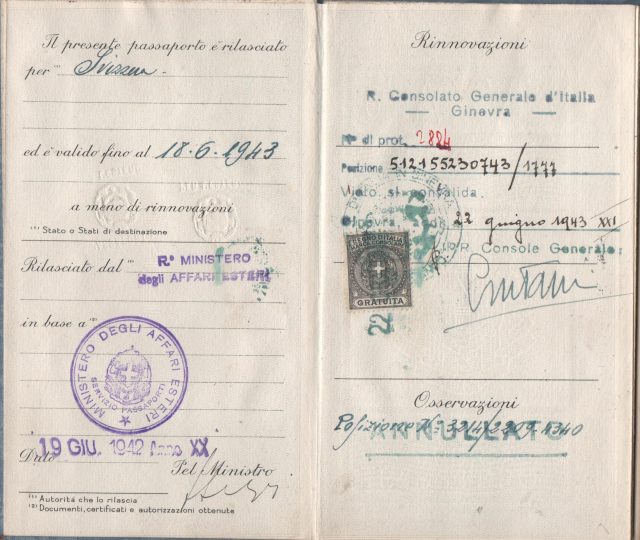 Il presente passaporto è rilasciato
per (1) Svizzera
ed è valido fino al 18.6.1943
a meno di rinnovazioni
(1) Stato o Stati di destinazione
Rilasciato dal (1) R.º MINISTERO
degli AFFARI ESTERI
in base a (2)
MINISTERO DEGLI AFFARI ESTERI
SERVIZIO PASSAPORTI
19 GIU. 1942 Anno XX
Dato
Pel Ministro
(1) Autorità che lo rilascia
(2) Documenti, certificati e autorizzazioni ottenute
Rinnovazioni
R. Consolato Generale d'Italia
Ginevra
Nº di prot. 2884
Posizione 512155230743/1777
Visto, si convalida.
Ginevra, 22 giugno 1943 XXI
R. Console Generale
GRATUITA
22
Osservazioni
Posizione Nº 3214/2209.4340
ANNULLATO